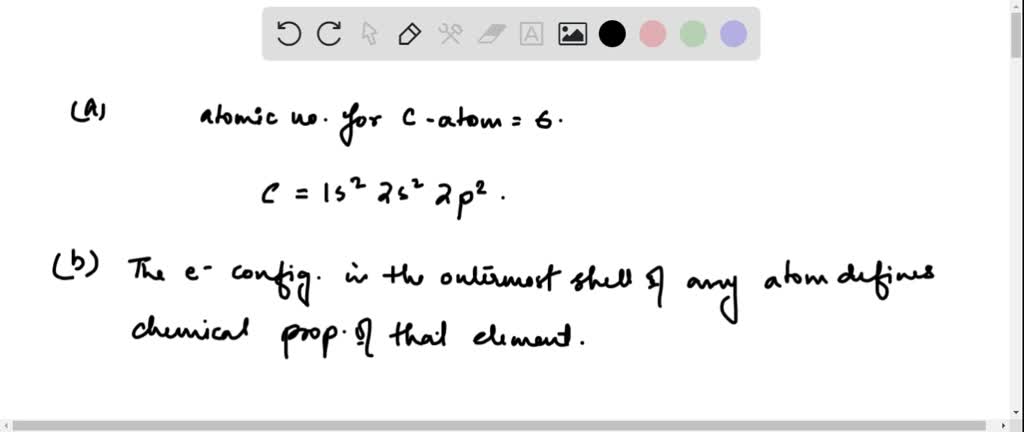 (A) atomic no. for C-atom = 6.
C = 1s² 2s² 2p².
(b) The e- config. in the outermost shell of any atom defines
chemical prop. of that element.